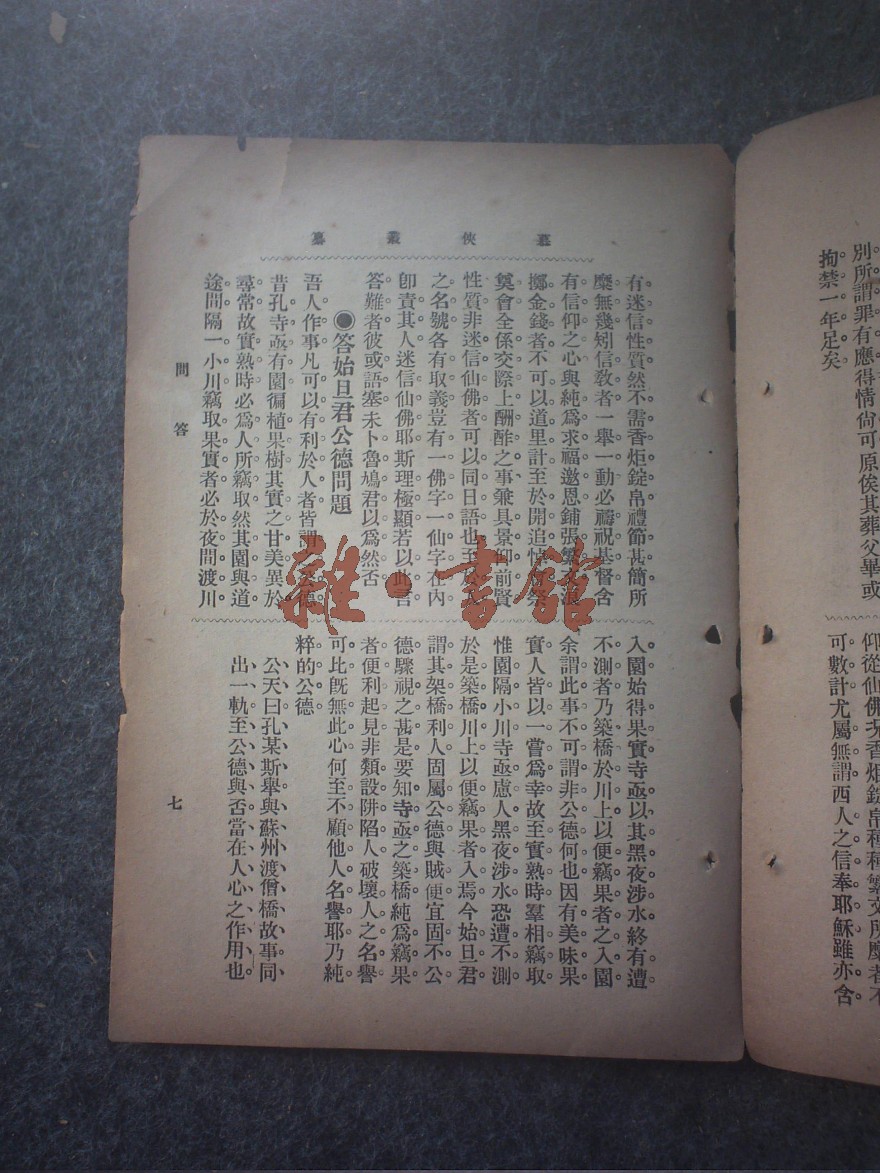 別所謂罪有應得情尙可原俟其葬父畢或
拘禁一年足矣
仰從仙佛況香炬錠帛種種繁文所靡者不
可數計尤屬無謂西人之信奉耶穌雖亦含
莊俠叢墓
有迷信性質然不需香炬錠帛禮節甚簡所
靡無幾矧信敎者一舉一動必禱祝基督含
有信仰之心與純爲求福邀恩鋪張繁文浪
擲金錢者不可以道里計至於開追悼
奠會全係交際上酬酢之事兼具景仰前賢
性質非迷信仙佛者可以同日語也至於
之名號各有取義豈有一佛字一仙字在內
卽責其人迷信仙佛耶斯理極顯若以此言
答難者彼或語塞未卜魯鳩君以爲然否
◉答始旦君公德問題
吾人作事凡可以有利於人者皆謂公德
昔孔寺亟有園徧植果樹其實之甘美異於
尋常故實熟時必爲人所竊取然其園與道
途間隔一小川竊取果實者必於夜間渡川
入園始得果實寺亟以其黑夜涉水終有遭
不測者乃築橋於川上以便竊果者之入園
余謂此事不可謂非公德何也因有美味果
實人皆以一嘗爲幸故至實熟時羣相竊取
惟園隔小川寺亟慮人黑夜涉水恐遭不測
於是築橋川上以便竊果者入焉今始旦君
謂其架橋利人固屬公德與賊便宜固不公
德驟視之甚是要知寺亟之築橋純爲竊果
者便利起見非類設阱陷人破壞人之名譽
可比旣無此心何至不顧他人名譽耶乃純
粹的公德
公天曰孔某斯舉與蘇州渡僧橋故事同
出一軌至公德與否當在人心之作用也
問答
七
雜·書館